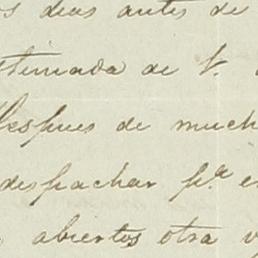 s dias antes de
stimada de V.
Despues de much
despachar p.ª e
abiertos otra v